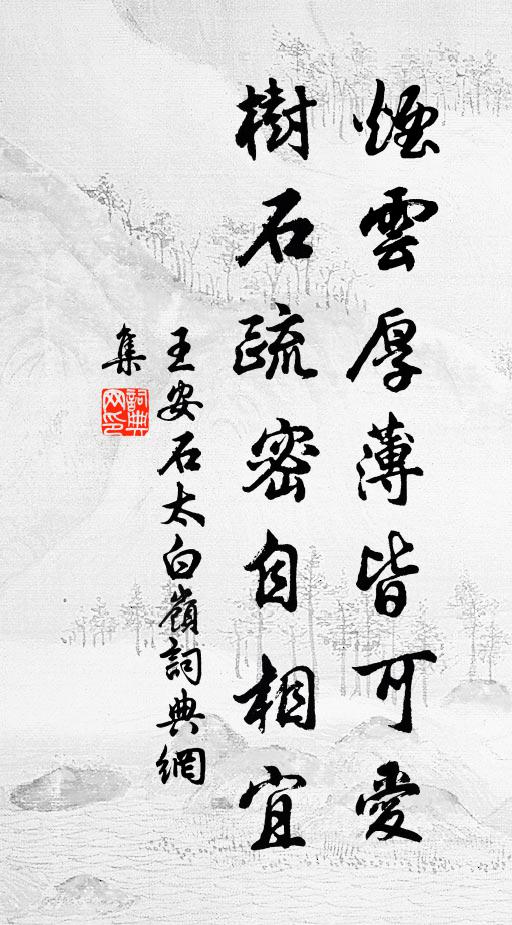 煙雲厚薄皆可愛
樹石疏密自相宜
王安石太白嶺詞典網
集
詞典
网印